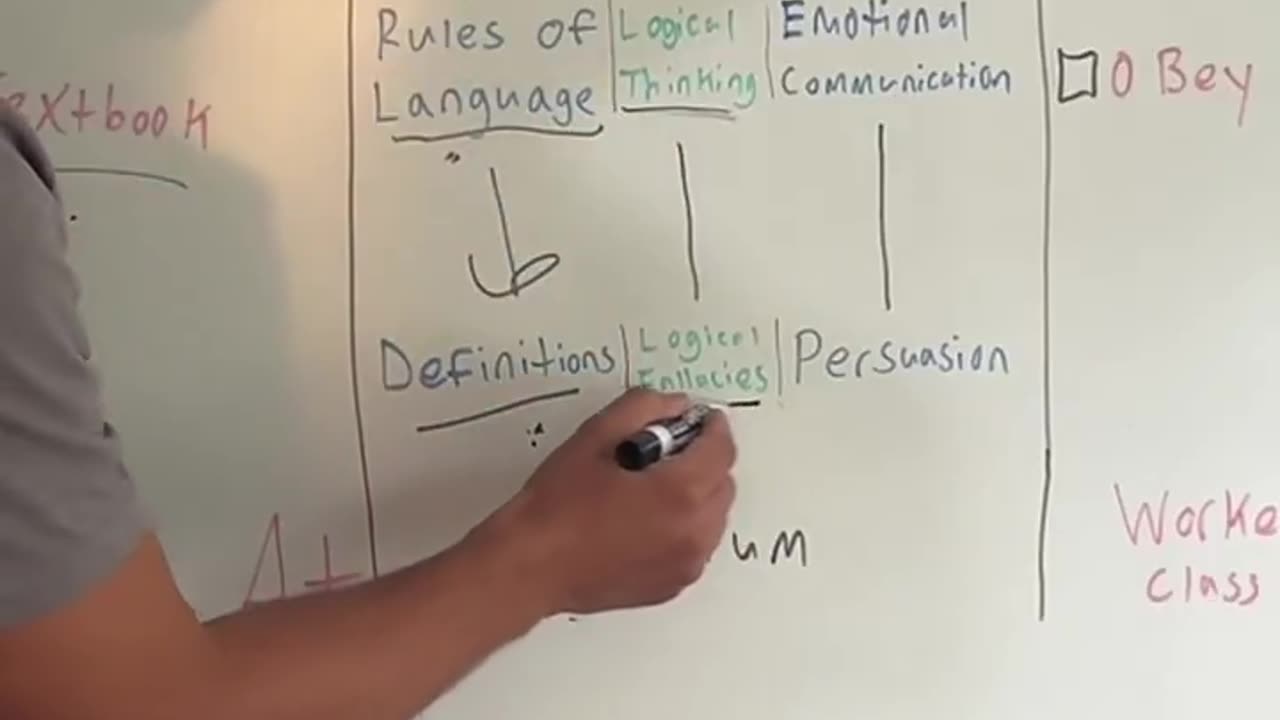 Textbook
Rules of
Language
Logical
Thinking
Emotional
Communication
Definitions
Logical
Fallacies
Persuasion
um
At
O Bey
Worke
Class